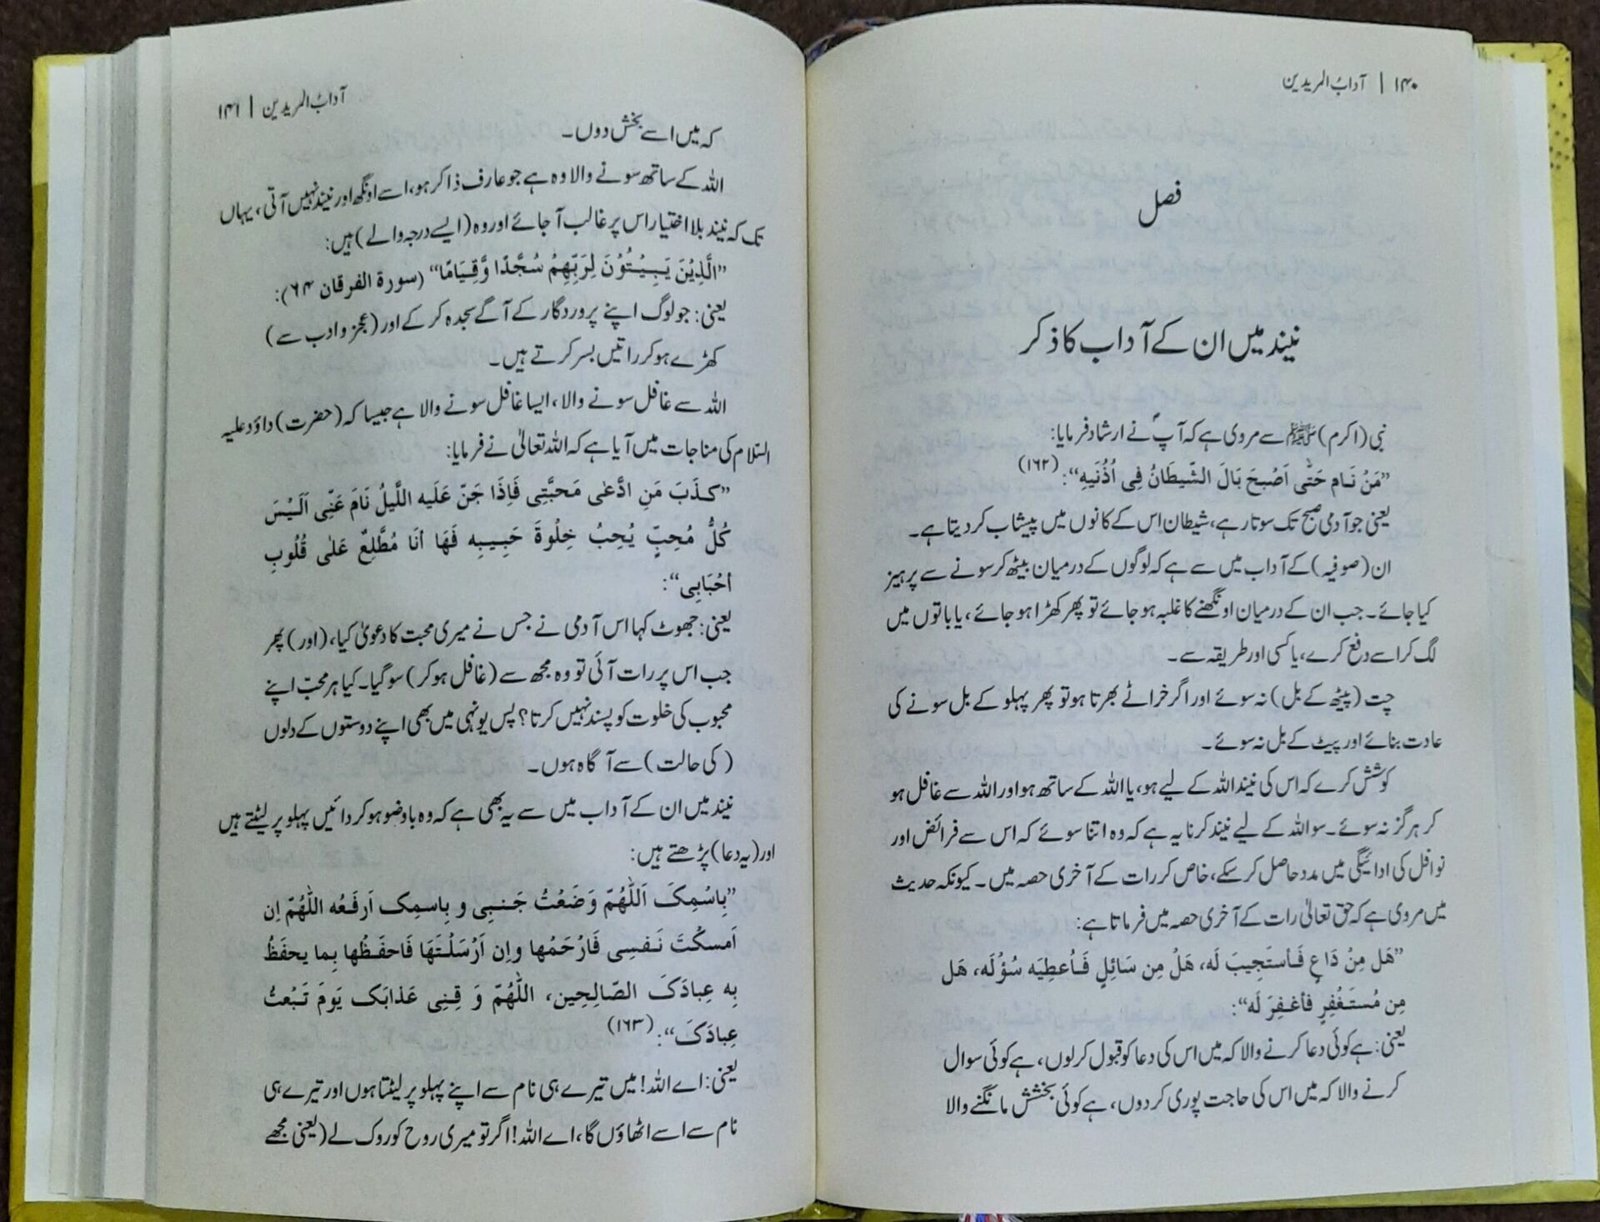 ۱۴۰ | آدابُ المریدین
فصل
نیند میں ان کے آداب کا ذکر
نبی (اکرم) ﷺ سے مروی ہے کہ آپؐ نے ارشاد فرمایا:
”مَنْ نَـام حَتّٰی اَصْبحَ بَالَ الشّیطَانُ فِی اُذُنَیهِ“: (۱۶۲)
یعنی جو آدمی صبح تک سوتا رہے، شیطان اس کے کانوں میں پیشاب کر دیتا ہے۔
ان (صوفیہ) کے آداب میں سے ہے کہ لوگوں کے درمیان بیٹھ کر سونے سے پرہیز
کیا جائے۔ جب ان کے درمیان اونگھنے کا غلبہ ہو جائے تو پھر کھڑا ہو جائے، یا باتوں میں
لگ کر اسے دفع کرے، یا کسی اور طریقہ سے۔
چت (پیٹھ کے بل) نہ سوئے اور اگر خراٹے بھرتا ہو تو پھر پہلو کے بل سونے کی
عادت بنائے اور پیٹ کے بل نہ سوئے۔
کوشش کرے کہ اس کی نیند اللہ کے لیے ہو، یا اللہ کے ساتھ ہو اور اللہ سے غافل ہو
کر ہرگز نہ سوئے۔ سو اللہ کے لیے نیند کرنا یہ ہے کہ وہ اتنا سوئے کہ اس سے فرائض اور
نوافل کی ادائیگی میں مدد حاصل کر سکے، خاص کر رات کے آخری حصہ میں۔ کیونکہ حدیث
میں مروی ہے کہ حق تعالیٰ رات کے آخری حصہ میں فرماتا ہے:
”هَل مِنْ دَاعٍ فَـأستَجِیبَ لَه، هَلْ مِن سَائِلٍ فَـاُعطِیَه سُؤْلَه، هَل
مِن مُستَـغْفِرٍ فأغـفِرَ لَه“:
یعنی: ہے کوئی دعا کرنے والا کہ میں اس کی دعا کو قبول کر لوں، ہے کوئی سوال
کرنے والا کہ میں اس کی حاجت پوری کر دوں، ہے کوئی بخشش مانگنے والا
آدابُ المریدین | ۱۴۱
کہ میں اسے بخش دوں۔
اللہ کے ساتھ سونے والا وہ ہے جو عارف ذاکر ہو، اسے اونگھ اور نیند نہیں آتی، یہاں
تک کہ نیند بلا اختیار اس پر غالب آ جائے اور وہ (ایسے درجہ والے) ہیں:
”الَّذِیْنَ یَـبِـیْـتُوْنَ لِرَبِّهِمْ سُجَّدًا وَّقِـیَـامًا“ (سورة الفرقان ۶۴):
یعنی: جو لوگ اپنے پروردگار کے آگے سجدہ کر کے اور (عجز و ادب سے)
کھڑے ہو کر راتیں بسر کرتے ہیں۔
اللہ سے غافل سونے والا، ایسا غافل سونے والا ہے جیسا کہ (حضرت) داؤد علیہ
السّلام کی مناجات میں آیا ہے کہ اللہ تعالیٰ نے فرمایا:
”کـذَبَ مَنِ ادَّعٰی مَحبَّتِی فَاِذَا جَنَّ عَلَیه اللَّیلُ نَامَ عَنِّی اَلَـیْسَ
کُلُّ مُحِبٍّ یُحِبُ خِلْوةَ حَبِـیـبِه فَهَا أنَا مُطَّلِعٌ عَلٰی قُلُوبِ
اَحْبَابِی“:
یعنی: جھوٹ کہا اس آدمی نے جس نے میری محبت کا دعویٰ کیا، (اور) پھر
جب اس پر رات آئی تو وہ مجھ سے (غافل ہو کر) سو گیا۔ کیا ہر محبّ اپنے
محبوب کی خلوت کو پسند نہیں کرتا؟ پس یونہی میں بھی اپنے دوستوں کے دلوں
(کی حالت) سے آگاہ ہوں۔
نیند میں ان کے آداب میں سے یہ بھی ہے کہ وہ باوضو ہو کر دائیں پہلو پر لیٹتے ہیں
اور (یہ دعا) پڑھتے ہیں:
”بِاسْمِکَ اَللّٰهُمّ وَضَعْتُ جَـنـبِی و بِاسمِک اَرفَـعُه اللّٰهُمّ اِن
اَمسکْتَ نَـفـسِی فَارْحَمْها واِن اَرْسَلْـتَهَا فَاحفَـظْها بِما یحفَظُ
بِه عِبادَکَ الصّالِحِین، اللّٰهُمّ وَ قِـنِی عَذابَک یَومَ تَـبْعثُ
عِبادَکَ“: (۱۶۳)
یعنی: اے اللہ! میں تیرے ہی نام سے اپنے پہلو پر لیٹتا ہوں اور تیرے ہی
نام سے اسے اٹھاؤں گا، اے اللہ! اگر تو میری روح کو روک لے (یعنی مجھے